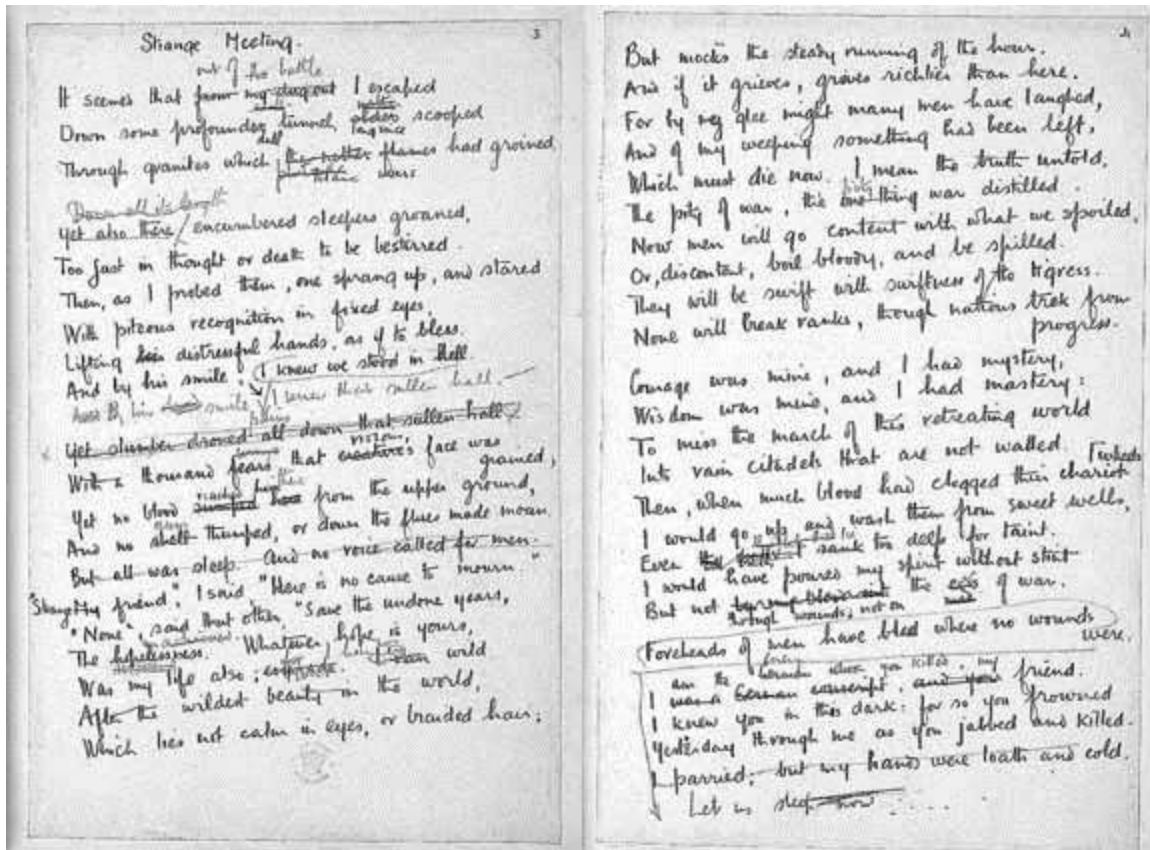 3
Strange Meeting.
out of the battle
It seems that from my dugout I escaped
Down some profounder tunnel, older scooped
dull long since
Through granites which the nether flames had groined
Down all its length
Yet also there / encumbered sleepers groaned,
Too fast in thought or death to be bestirred.
Then, as I probed them, one sprang up, and stared
With piteous recognition in fixed eyes,
Lifting his distressful hands, as if to bless.
And by his smile, I knew we stood in Hell.
And by his smile, I knew that sullen hall.
Yet slumber droned all down that sullen hall.
vision's
With a thousand fears that creature's face was grained,
Yet no blood from the upper ground,
And no shell thumped, or down the flues made moan.
But all was sleep. And no voice called for men.
"Strange, My friend", I said, "Here is no cause to mourn."
"None", said that other, "Save the undone years,
The hopelessness. Whatever hope is yours,
Was my life also; I went wild
After the wildest beauty in the world,
Which lies not calm in eyes, or braided hair;
4
But mocks the steady running of the hour.
And if it grieves, grieves richlier than here.
For by my glee might many men have laughed,
And of my weeping something had been left,
Which must die now. I mean the truth untold,
The pity of war, the one thing war distilled.
Now men will go content with what we spoiled,
Or, discontent, boil bloody, and be spilled.
They will be swift with swiftness of the tigress.
None will break ranks, though nations trek from
progress.
Courage was mine, and I had mystery,
Wisdom was mine, and I had mastery:
To miss the march of this retreating world
Into vain citadels that are not walled.
Then, when much blood had clogged their chariot wheels
I would go up and wash them from sweet wells,
Even I sank too deep for taint.
I would have poured my spirit without stint
But not the cess of war.
through wounds; not on
Foreheads of men have bled where no wounds
were.
am the enemy you killed, my
I was a German conscript, and your friend.
I knew you in this dark: for so you frowned
Yesterday through me as you jabbed and killed.
I parried; but my hands were loath and cold.
Let us sleep now . . . . .